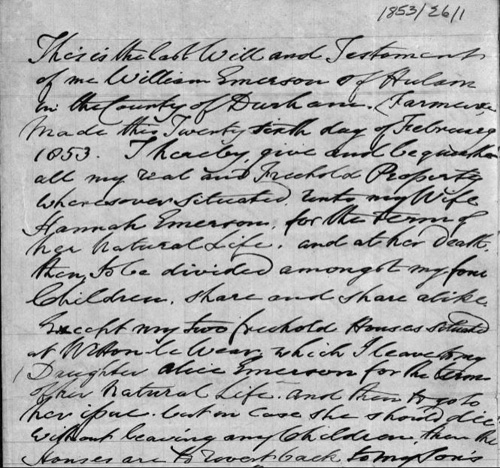 1853/26/1
This is the last Will and Testament
of me William Emerson of Hulam
in the County of Durham. (Farmer)
Made this Twenty sixth day of February
1853. I hereby give and bequeath
all my real and Freehold Property
wheresoever situated, unto my Wife
Hannah Emerson, for the term of
her Natural Life, and at her Death,
then, to be divided amongst my four
Children, share and share alike
Except my two freehold Houses situated
at Witton le Wear, which I leave to my
Daughter Alice Emerson for the term
of her Natural Life. and then to go to
her issue. but in case she should die
without leaving any Children, then the
Houses are to revert back to my Son's